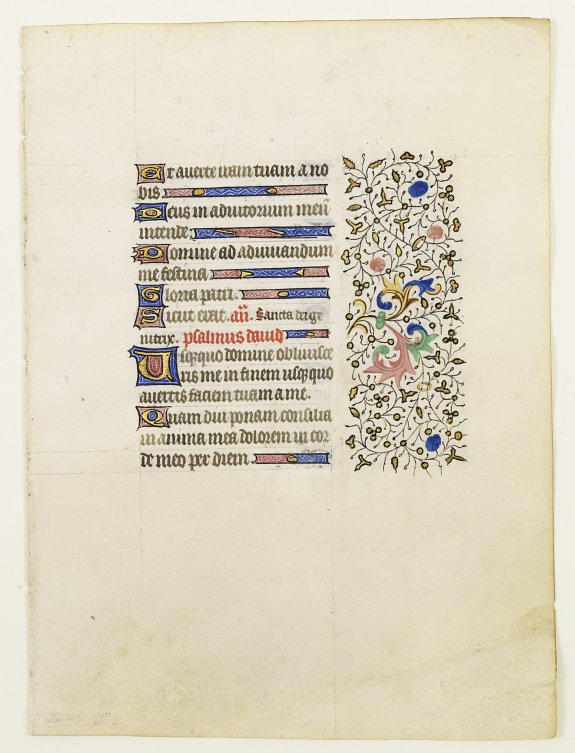 Et averte iram tuam a no
bis
Deus in adiutorium meū
intende
Domine ad adiuuandum
me festina
Gloria patri.
Sicut erat. añ. Sancta dei ge
nitrix. psalmus dauid
Usquequo domine obliuisce
ris me in finem usquequo
auertis faciem tuam a me.
Quam diu ponam consilia
in anima mea dolorem in cor
de meo per diem.